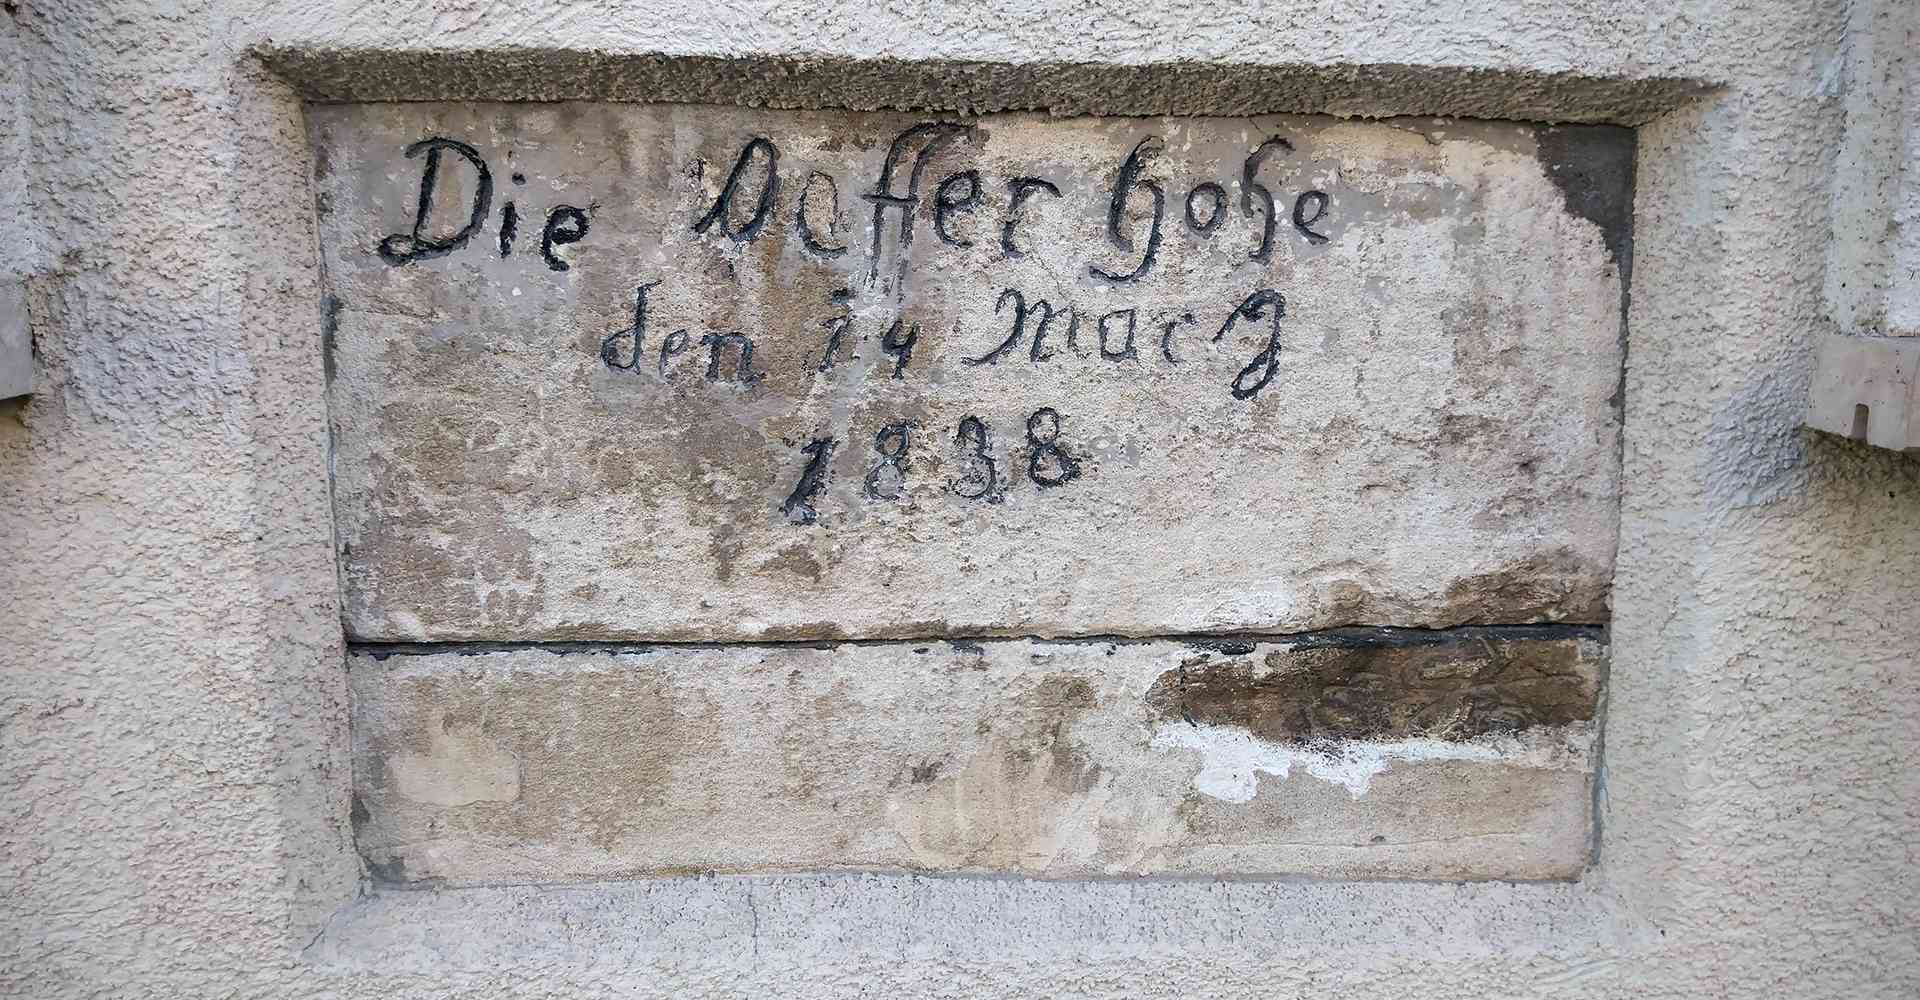 Die Waſſer Hohe
den 14 Marz
1838